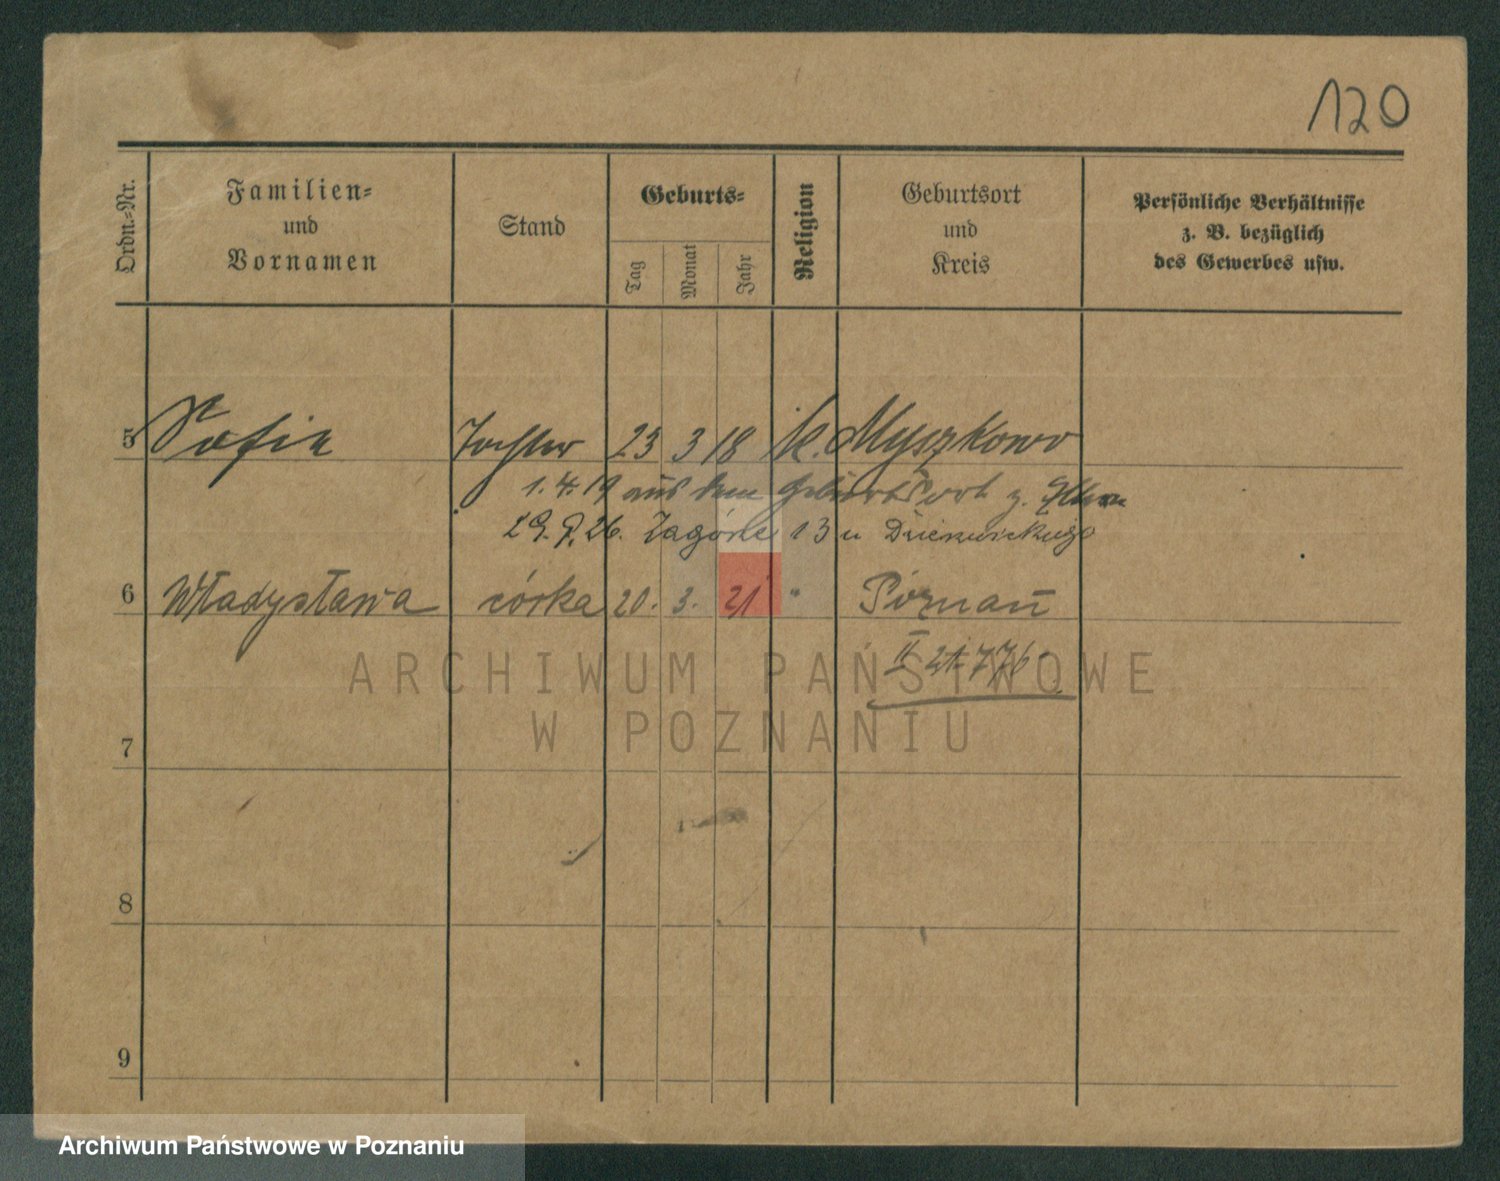 120
Ordn.-Nr.
Familien-
und
Vornamen
Stand
Geburts-
Tag
Monat
Jahr
Religion
Geburtsort
und
Kreis
Persönliche Verhältnisse
z. B. bezüglich
des Gewerbes usw.
5 Sofie Tochter 23 3 18 k. Myszkowo
1. 4. 19 aus dem Geburtsort z. Eltern
29. 9. 26. Zagórze 13 u
6 Władysława córka 20. 3. 21 " Poznań
II 21.776
ARCHIWUM PAŃSTWOWE
W POZNANIU
7
8
9
Archiwum Państwowe w Poznaniu